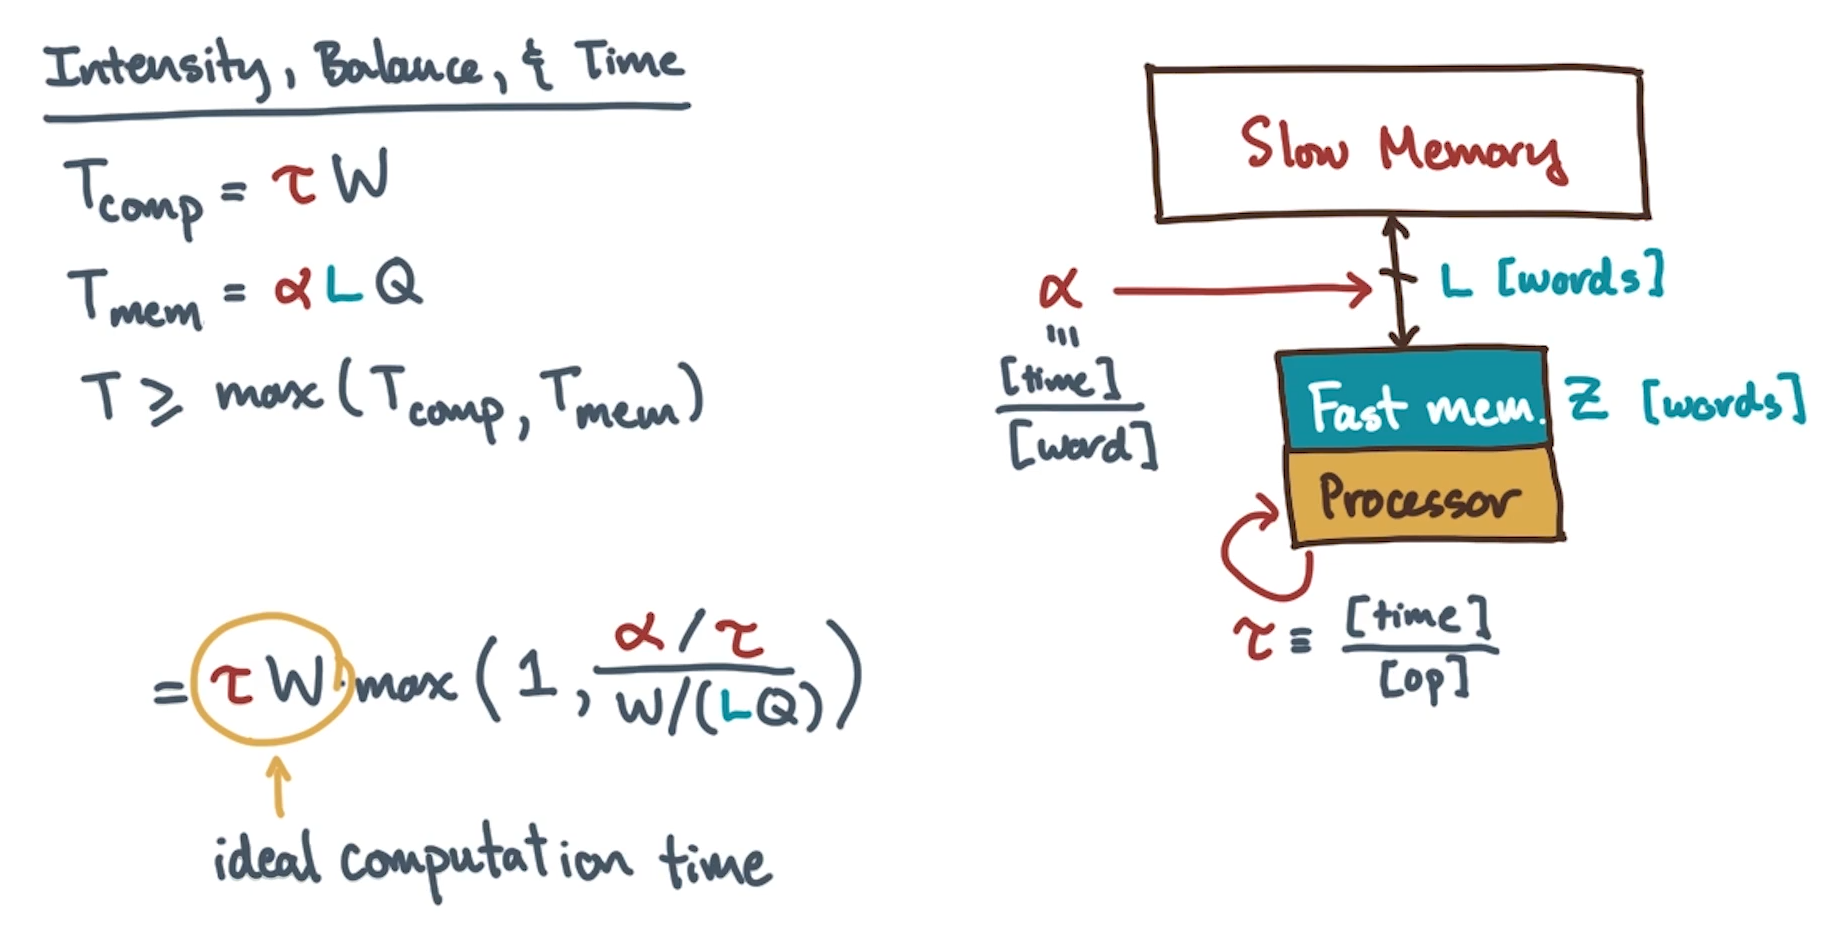 Intensity, Balance, & Time
T_comp = τ W
T_mem = α L Q
T ≥ max(T_comp, T_mem)
= τ W · max(1, (α/τ) / (W/(LQ)))
ideal computation time
Slow Memory
L [words]
α
≡
[time]
[word]
Fast mem.
Z [words]
Processor
τ ≡ [time]
[op]